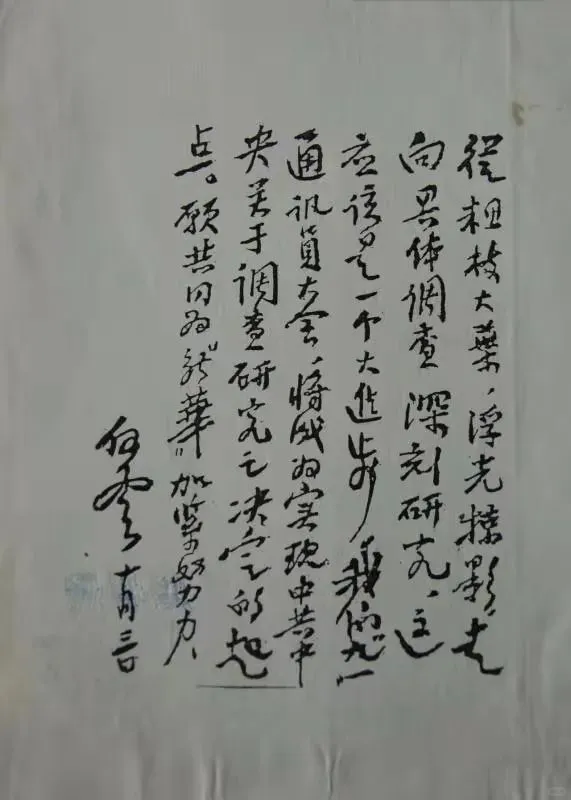 從粗枝大葉、浮光掠影，走
向具体調查深刻研究，这
应该是一个大進步，我们九一
通訊員大会，將成为实现中共中
央关于調查研究之决定的起
点。願共同为“新華”加紧努力、
十月三日